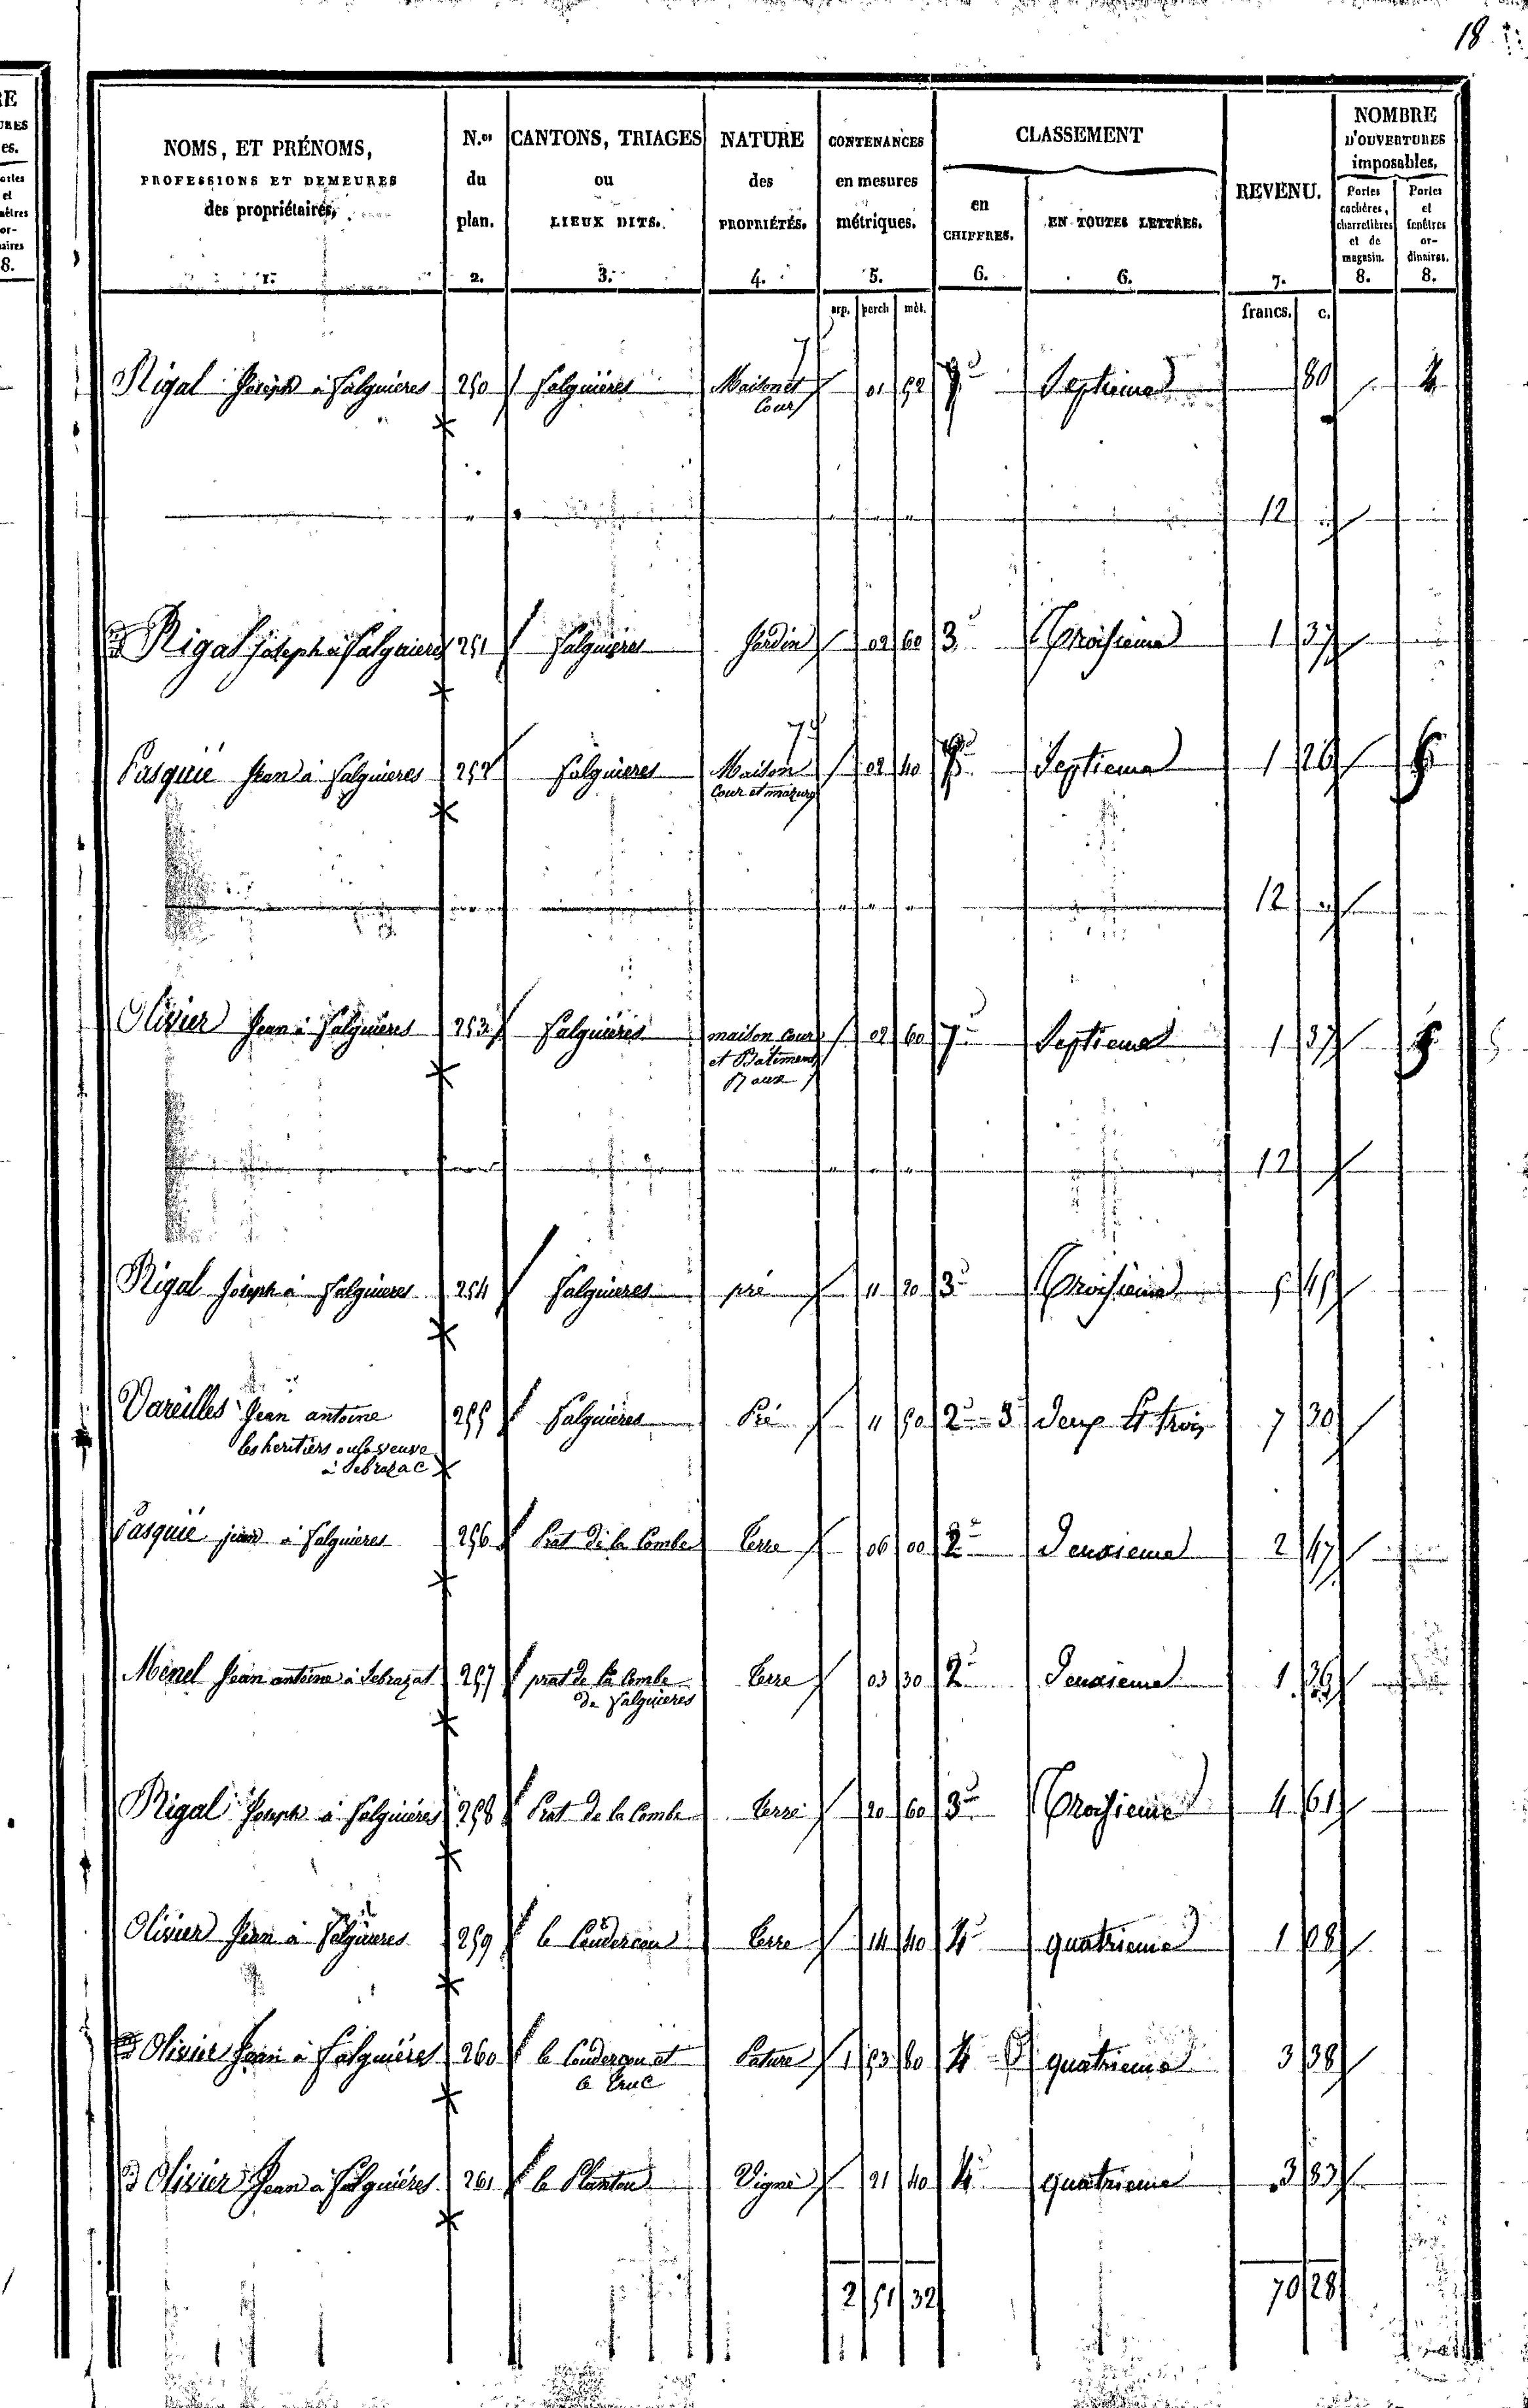 18
NOMS, ET PRÉNOMS, PROFESSIONS ET DEMEURES des propriétaires,
N.os du plan.
CANTONS, TRIAGES ou LIEUX DITS.
NATURE des PROPRIÉTÉS.
CONTENANCES en mesures métriques.
CLASSEMENT
en CHIFFRES.
EN TOUTES LETTRES.
REVENU.
NOMBRE D'OUVERTURES imposables,
Portes cochères, charretières et de magasin.
Portes et fenêtres ordinaires.
1. 2. 3. 4. 5. 6. 6. 7. 8. 8.
arp. perch. mèt. francs. c.
Rigal Joseph à Salguieres 250 Salguières Maison et 01 52 7e Septieme 80
Cour
12
Rigal Joseph à Salguieres 251 Salguieres Jardin 02 60 3e Troisieme 1 37
Pasquié Jean à Salguieres 252 Salguieres Maison 02 40 Septieme 1 26
Cour et mazure
12
Olivier Jean à Salguieres 253 Salguieres maison cour 02 60 7e Septieme 1 37
et Batiment
12
Rigal Joseph à Salguieres 254 Salguieres pré 11 20 3e Troisieme 5 45
Vareilles Jean antoine 255 Salguieres Pré 11 50 2e 3e Deux et trois 7 30
les heritiers ou la veuve
à Sebrazac
Pasquié jean à Salguieres 256 Prat de la Combe Terre 06 00 2e Deuxieme 2 47
Menel Jean antoine à Sebrazat 257 prat de la Combe Terre 03 30 2e Deuxieme 1 36
de Salguieres
Rigal Joseph à Salguieres 258 Prat de la Combe Terre 20 60 3e Troisieme 4 61
Olivier Jean à Salguieres 259 le Coudercou Terre 14 40 4e quatrieme 1 08
Olivier Jean à Salguières 260 le Coudercou et Pature 1 53 80 4e quatrieme 3 38
le Truc
Olivier Jean à Salguières 261 le Planton Vigne 21 40 4e quatrieme 3 83
2 51 32 70 28